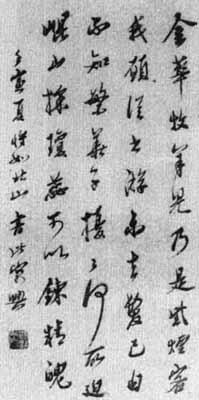 金華牧羊兒乃是紫煙客
我願從之游未去髮已白
不知繁華子擾々何所迫
崐山採瓊蕊可以鍊精魄
寅夏 如北山書此 興